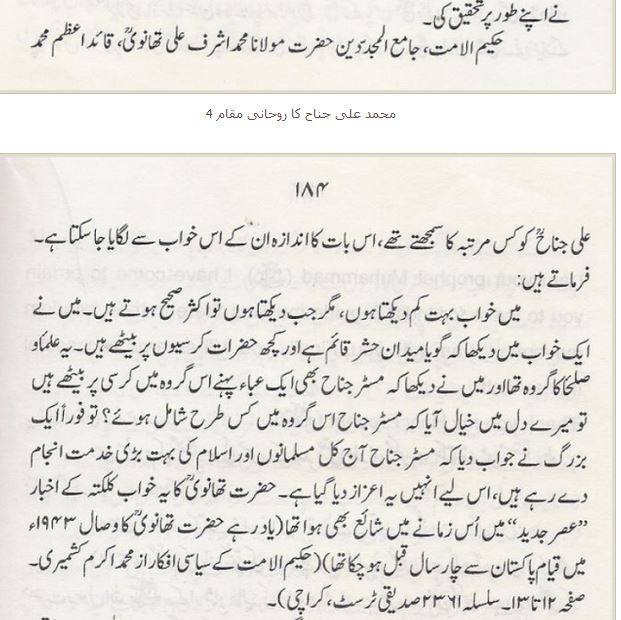 نے اپنے طور پر تحقیق کی۔
حکیم الامت، جامع المجددین حضرت مولانا محمد اشرف علی تھانویؒ، قائد اعظم محمد
محمد علی جناح کا روحانی مقام 4
۱۸۴
علی جناحؒ کو کس مرتبہ کا سمجھتے تھے، اس بات کا اندازہ ان کے اس خواب سے لگایا جا سکتا ہے۔
فرماتے ہیں:
میں خواب بہت کم دیکھتا ہوں، مگر جب دیکھتا ہوں تو اکثر صحیح ہوتے ہیں۔ میں نے
ایک خواب میں دیکھا کہ گویا میدان حشر قائم ہے اور کچھ حضرات کرسیوں پر بیٹھے ہیں۔ یہ علماؤ
صلحا کا گروہ تھا اور میں نے دیکھا کہ مسٹر جناح بھی ایک عباء پہنے اس گروہ میں کرسی پر بیٹھے ہیں
تو میرے دل میں خیال آیا کہ مسٹر جناح اس گروہ میں کس طرح شامل ہوئے؟ تو فوراً ایک
بزرگ نے جواب دیا کہ مسٹر جناح آج کل مسلمانوں اور اسلام کی بہت بڑی خدمت انجام
دے رہے ہیں، اس لیے انہیں یہ اعزاز دیا گیا ہے۔ حضرت تھانویؒ کا یہ خواب کلکتہ کے اخبار
”عصر جدید“ میں اُس زمانے میں شائع بھی ہوا تھا (یاد رہے حضرت تھانویؒ کا وصال ۱۹۴۳ء
میں قیام پاکستان سے چار سال قبل ہو چکا تھا) (حکیم الامت کے سیاسی افکار از محمد اکرم کشمیری۔
صفحہ ۱۲ تا ۱۳۔ سلسلہ ۲۳۶۱ صدیقی ٹرسٹ، کراچی)۔